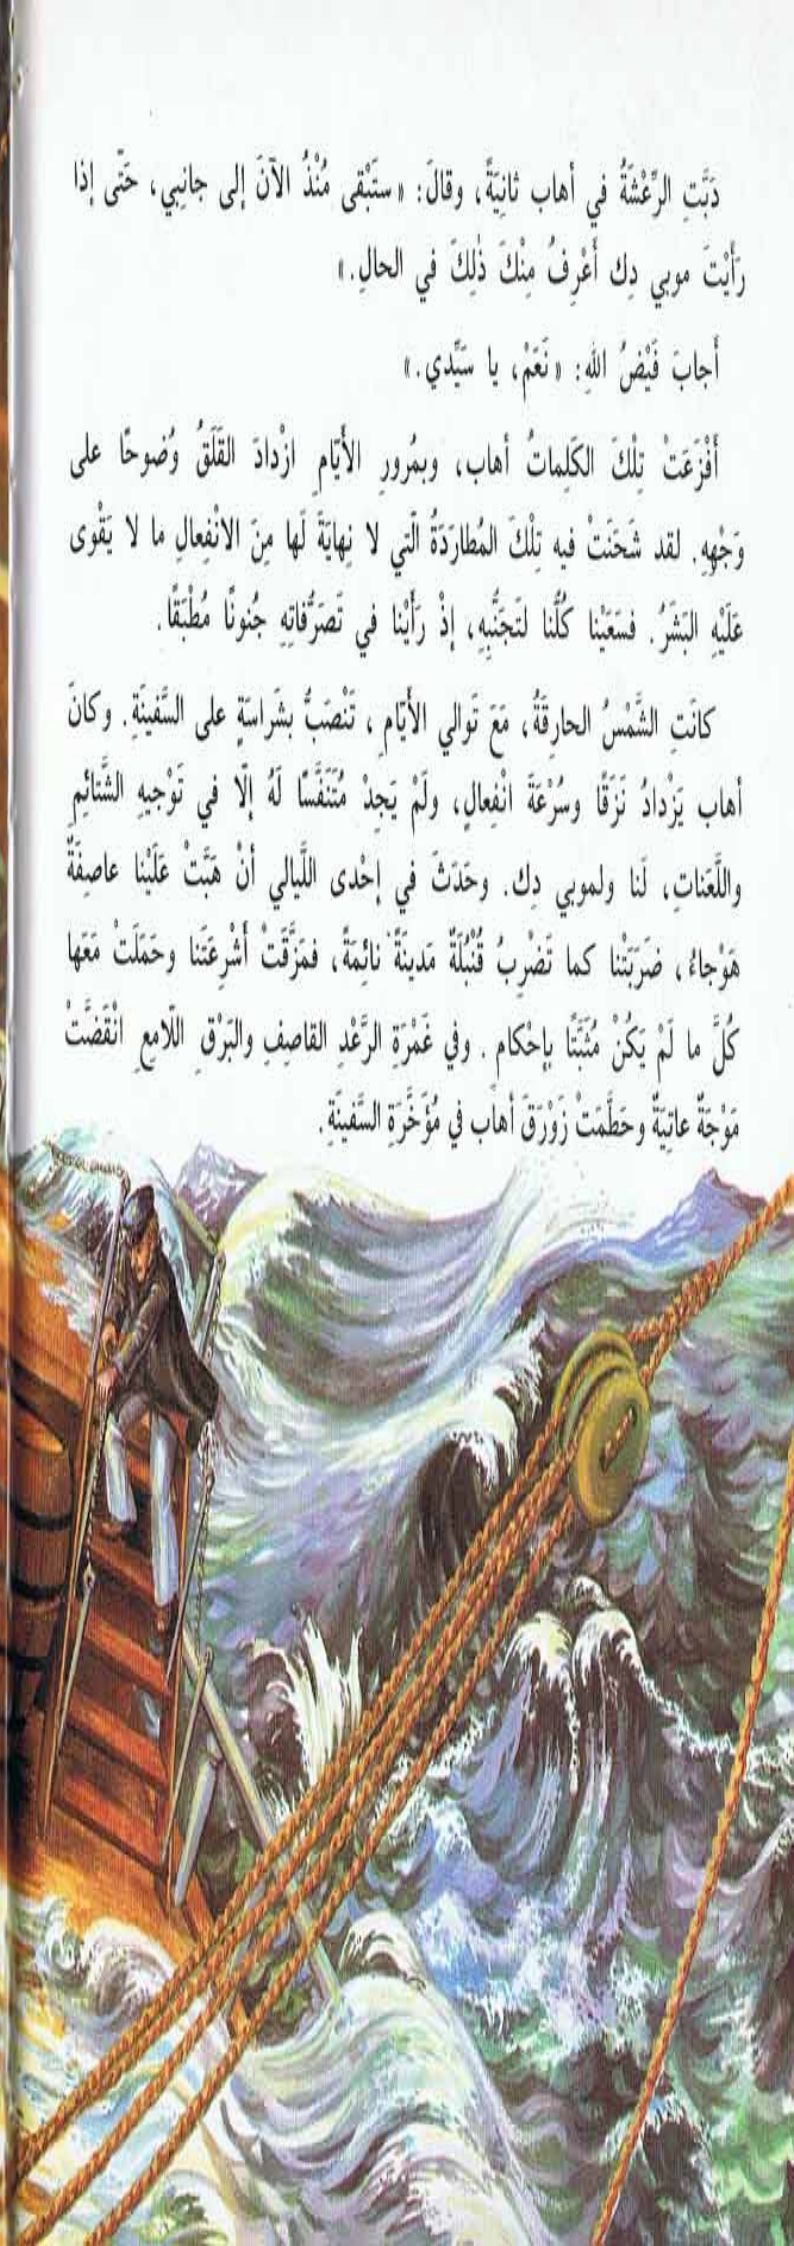 دَبَّتِ الرَّعْشَةُ في أهاب ثانِيَةً، وقالَ: «ستَبْقى مُنْذُ الآنَ إلى جانِبي، حَتّى إذا
رَأَيْتَ موبي دِك أَعْرِفُ مِنْكَ ذٰلِكَ في الحالِ.»
أَجابَ فَيْضُ اللهِ: «نَعَمْ، يا سَيِّدي.»
أَفْزَعَتْ تِلْكَ الكَلِماتُ أهاب، وبمُرورِ الأَيّامِ ازْدادَ القَلَقُ وُضوحًا على
وَجْهِهِ. لقد شَحَنَتْ فيه تِلْكَ المُطارَدَةُ الَّتي لا نِهايَةَ لَها مِنَ الانْفِعالِ ما لا يَقْوى
عَلَيْهِ البَشَرُ. فسَعَيْنا كُلُّنا لتَجَنُّبِهِ، إذْ رَأَيْنا في تَصَرُّفاتِهِ جُنونًا مُطْبَقًا.
كانَتِ الشَّمْسُ الحارِقَةُ، مَعَ تَوالي الأَيّامِ، تَنْصَبُّ بشَراسَةٍ على السَّفينَةِ. وكانَ
أهاب يَزْدادُ نَزَقًا وسُرْعَةَ انْفِعالٍ، ولَمْ يَجِدْ مُتَنَفَّسًا لَهُ إلّا في تَوْجيهِ الشَّتائِمِ
واللَّعَناتِ، لَنا ولموبي دِك. وحَدَثَ في إحْدى اللَّيالي أنْ هَبَّتْ عَلَيْنا عاصِفَةٌ
هَوْجاءُ، ضَرَبَتْنا كما تَضْرِبُ قُنْبُلَةٌ مَدينَةً نائِمَةً، فمَزَّقَتْ أشْرِعَتَنا وحَمَلَتْ مَعَها
كُلَّ ما لَمْ يَكُنْ مُثَبَّتًا بإحْكامٍ. وفي غَمْرَةِ الرَّعْدِ القاصِفِ والبَرْقِ اللّامِعِ انْقَضَّتْ
مَوْجَةٌ عاتِيَةٌ وحَطَّمَتْ زَوْرَقَ أهاب في مُؤَخَّرَةِ السَّفينَةِ.